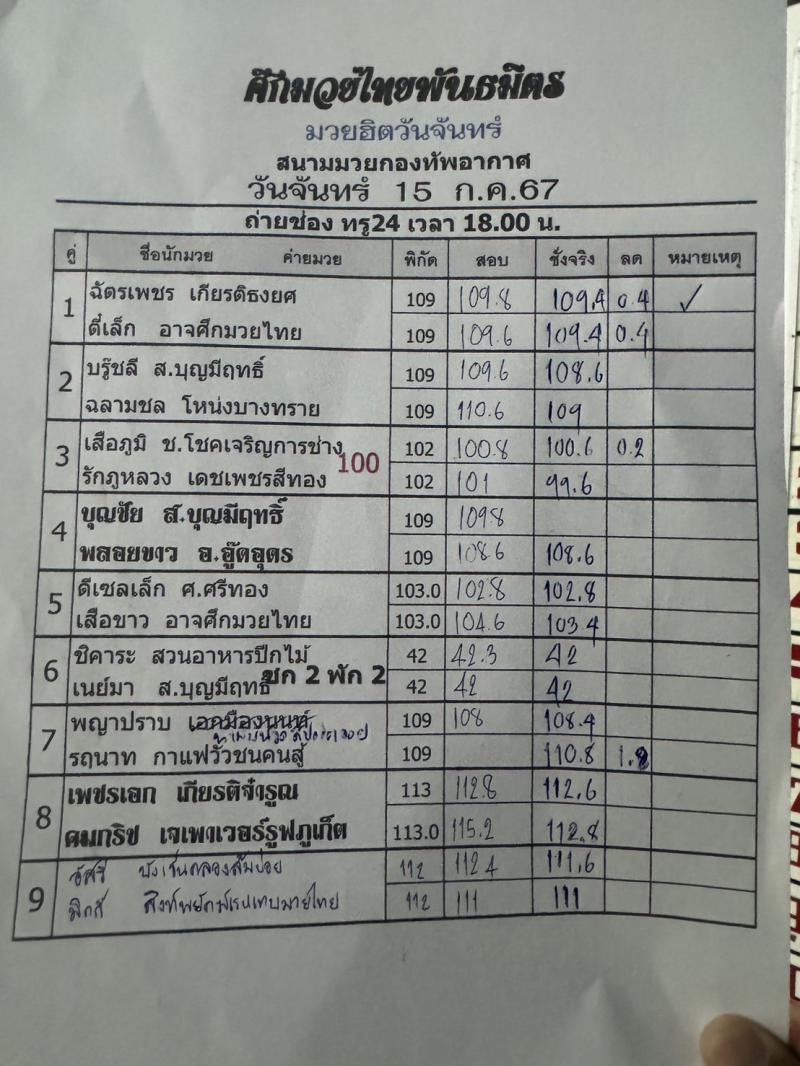 ศึกมวยไทยพันธมิตร
มวยฮิตวันจันทร์
สนามมวยกองทัพอากาศ
วันจันทร์ 15 ก.ค.67
ถ่ายช่อง ทรู24 เวลา 18.00 น.
คู่ ชื่อนักมวย ค่ายมวย พิกัด สอบ ชั่งจริง ลด หมายเหตุ
1 ฉัตรเพชร เกียรติธงยศ 109 109.8 109.4 0.4 ✓
ตี๋เล็ก อาจศึกมวยไทย 109 109.6 109.4 0.4
2 บรู๊ซลี ส.บุญมีฤทธิ์ 109 109.6 108.6
ฉลามชล โหน่งบางทราย 109 110.6 109
3 เสือภูมิ ช.โชคเจริญการช่าง 102 100.8 100.6 0.2
100
รักภูหลวง เดชเพชรสีทอง 102 101 99.6
4 บุญชัย ส.บุญมีฤทธิ์ 109 109.8
พลอยขาว อ.อู๊ดอุดร 109 108.6 108.6
5 ดีเซลเล็ก ศ.ศรีทอง 103.0 102.8 102.8
เสือขาว อาจศึกมวยไทย 103.0 104.6 103.4
6 ชิคาระ สวนอาหารปีกไม้ 42 42.3 42
ชก 2 พัก 2
เนย์มา ส.บุญมีฤทธิ์ 42 42 42
7 พญาปราบ เอคเมืองนนท์ 109 108 108.4
รถนาท กาแฟวัวชนคนสู้ 109 110.8 1.8
8 เพชรเอก เกียรติจำรูญ 113 112.8 112.6
คมกริช เจเพาเวอร์รูฟภูเก็ต 113.0 115.2 112.8
9 อัศวี บังเซ็นคลองส้มป่อย 112 112.4 111.6
มิกกี้ สิงห์พยัคฆ์เรนเทบมายไทย 112 111 111